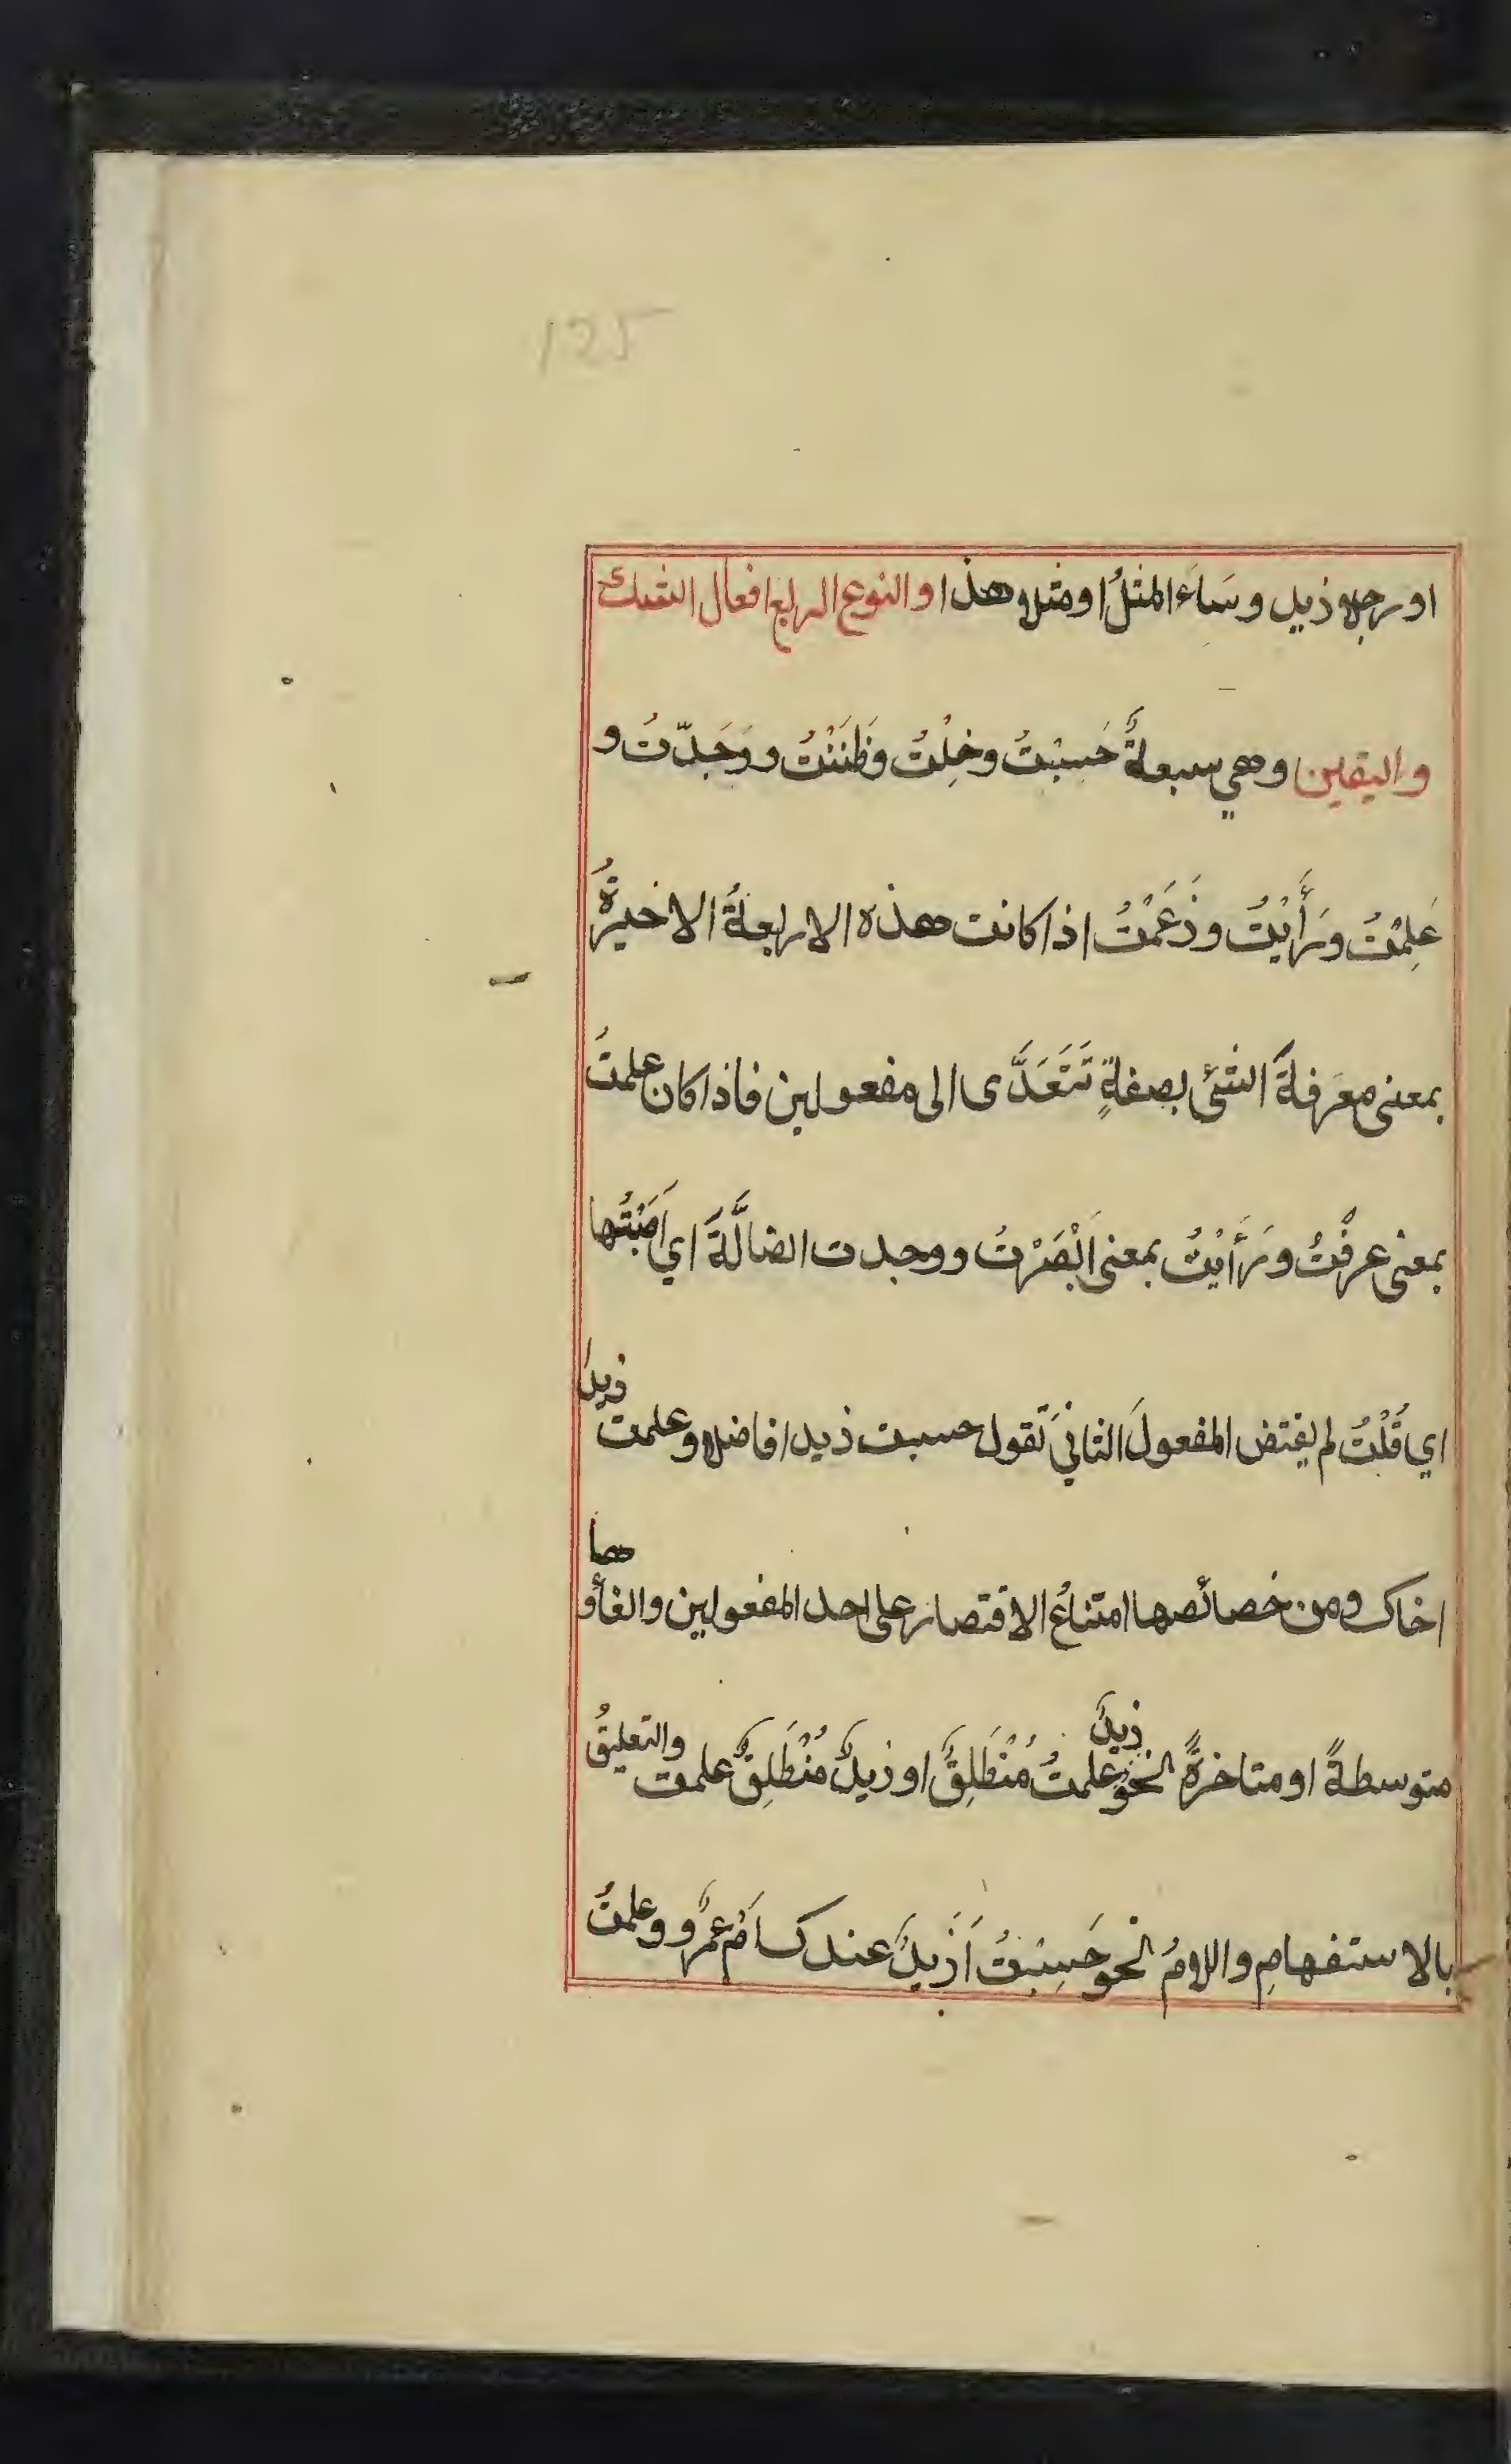 125
او رجلا ذيل وسَاءَ المثلُ او مثلا هذا والنوع الرابع افعال الشك
واليقين وهي سبعةٌ حَسِبْتُ وخِلْتُ وظَنَنْتُ ووَجَدّتُ و
عَلِمْتُ ورَأَيْتُ وذَعَمْتُ اذا كانت هذه الاربعةُ الاخيرةُ
بمعنى معَرفةَ الشئ بصفةٍ تَتَعَدَّى الى مفعولين فاذا كان علمتَ
بمعنى عرفْتُ ورَأَيْتُ بمعنى اَبْصَرْتُ ووجدت الضالَّةَ اي اَصَبْتُها
اي قُلْتُ لم يقتض المفعولَ الثانيَ تَقول حسبت ذيدا فاضلا وعلمت ذيدا
اخاك ومن خصائصها امتناعُ الاقتصار على احد المفعولين والغاؤها
متوسطةً او متاخرةً نحو ذيدٌ علمتُ مُنْطَلِقٌ او ذيدٌ مُنْطَلِقٌ علمت والتعليقُ
بالاستفهامِ واللامُ نحو حَسِبْتُ اَذَيدٌ عندك اَمْ عمْرٌو وعلمتُ